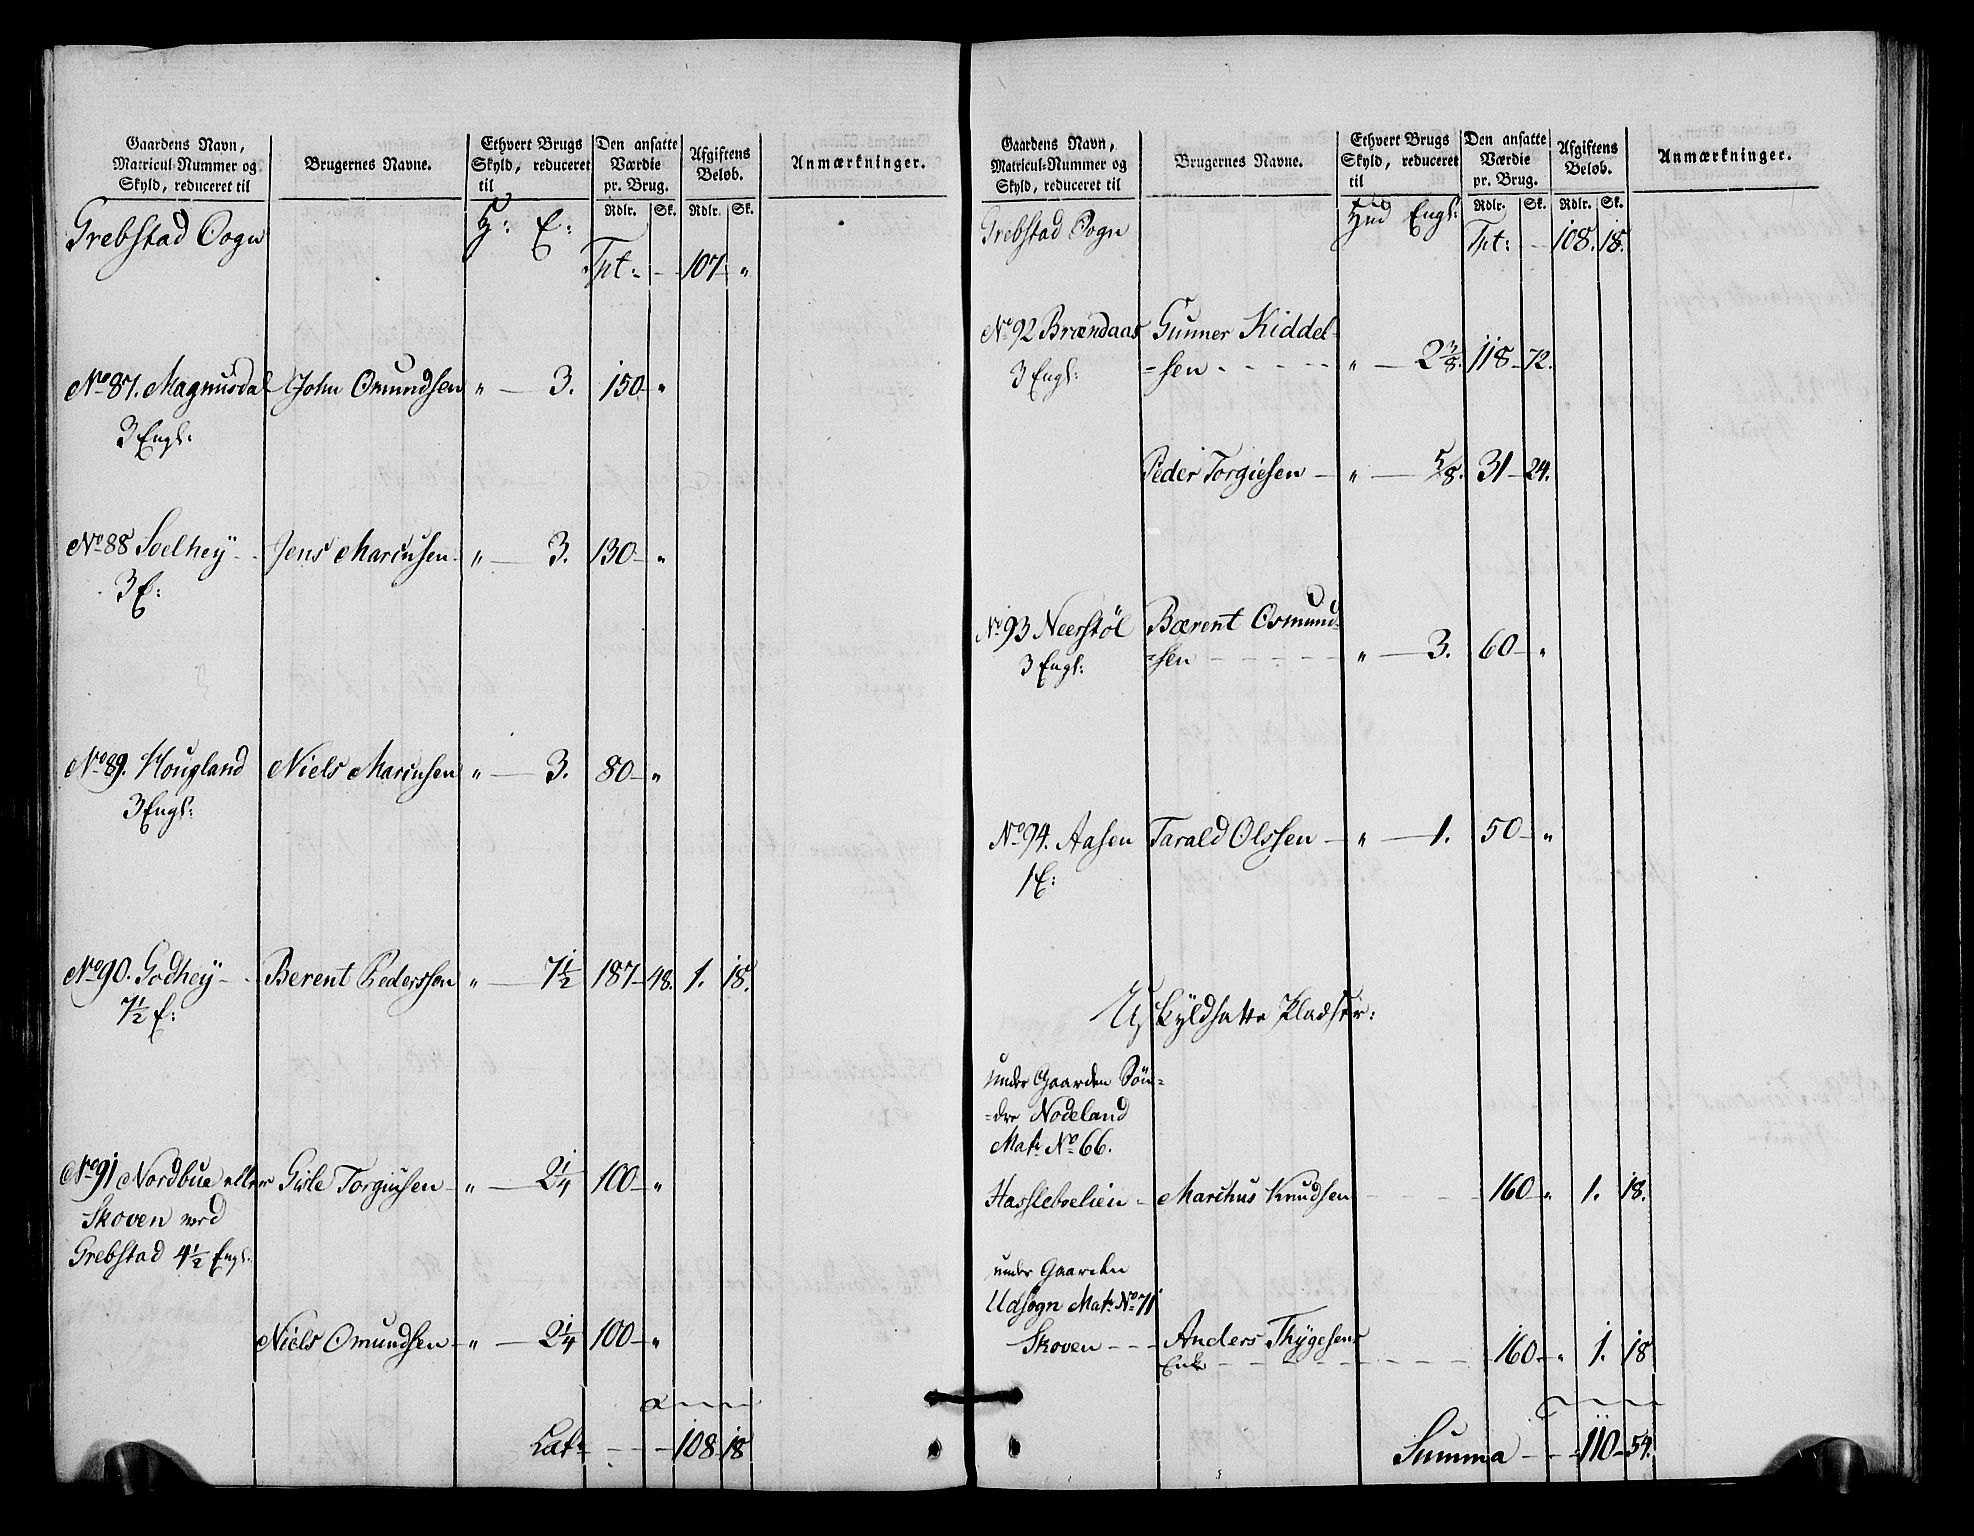 Gaardens Navn, Matricul-Nummer og Skyld, reduceret til | Brugernes Navne. | Ethvert Brugs Skyld, reduceret til | Den ansatte Værdie pr. Brug. | Afgiftens Beløb. | Anmærkninger.
Rdlr. | Sk. | Rdlr. | Sk.
Grebstad Sogn | H: E:
Trt: - - 107 "
No 87. Magnusdal | John Omundsen | " — 3. | 150 "
3 Engl:
No 88 Soelheÿ - | Jens Marcusen | " — 3. | 130 "
3 E:
No 89. Hougland | Niels Marcusen | " — 3. | 80 "
3 Engl:
No 90. Godheÿ - | Berent Pederssen | " — 7½ | 187 48. | 1. 18.
7½ E:
No 91 Nordbue eller | Gisle Torgiusen | " — 2¼ | 100 "
Skoven ved
Grebstad 4½ Engl.
Niels Omundsen | " — 2¼ | 100 "
Lat: - - - 108 18
Gaardens Navn, Matricul-Nummer og Skyld, reduceret til | Brugernes Navne. | Ethvert Brugs Skyld, reduceret til | Den ansatte Værdie pr. Brug. | Afgiftens Beløb. | Anmærkninger.
Rdlr. | Sk. | Rdlr. | Sk.
Grebstad Sogn | Hud Engl:
Trt: - - 108. 18.
No 92 Brændaas | Gunner Kiddel-
3 Engl: | =sen - - - - | " — 2⅜. | 118 72.
Peder Torgiesen | " — ⅝. | 31 24.
No 93 Neerstöl | Bærent Osmund-
3 Engl: | =sen - - - - | " — 3. | 60 "
No 94. Aasen | Tarald Olssen | " — 1. | 50 "
1 E:
Uskyldsatte Pladser:
under Gaarden Sön=
=dre Nodeland
Mat: No 66.
Hasslebvelien - | Marchus Knudsen | 160 " | 1. 18.
under Gaarden
Udsogn Mat: No 71
Skoven - - - | Anders Thÿgesens
Enke - - - - | 160 " | 1. 18
Summa - - 110 54.